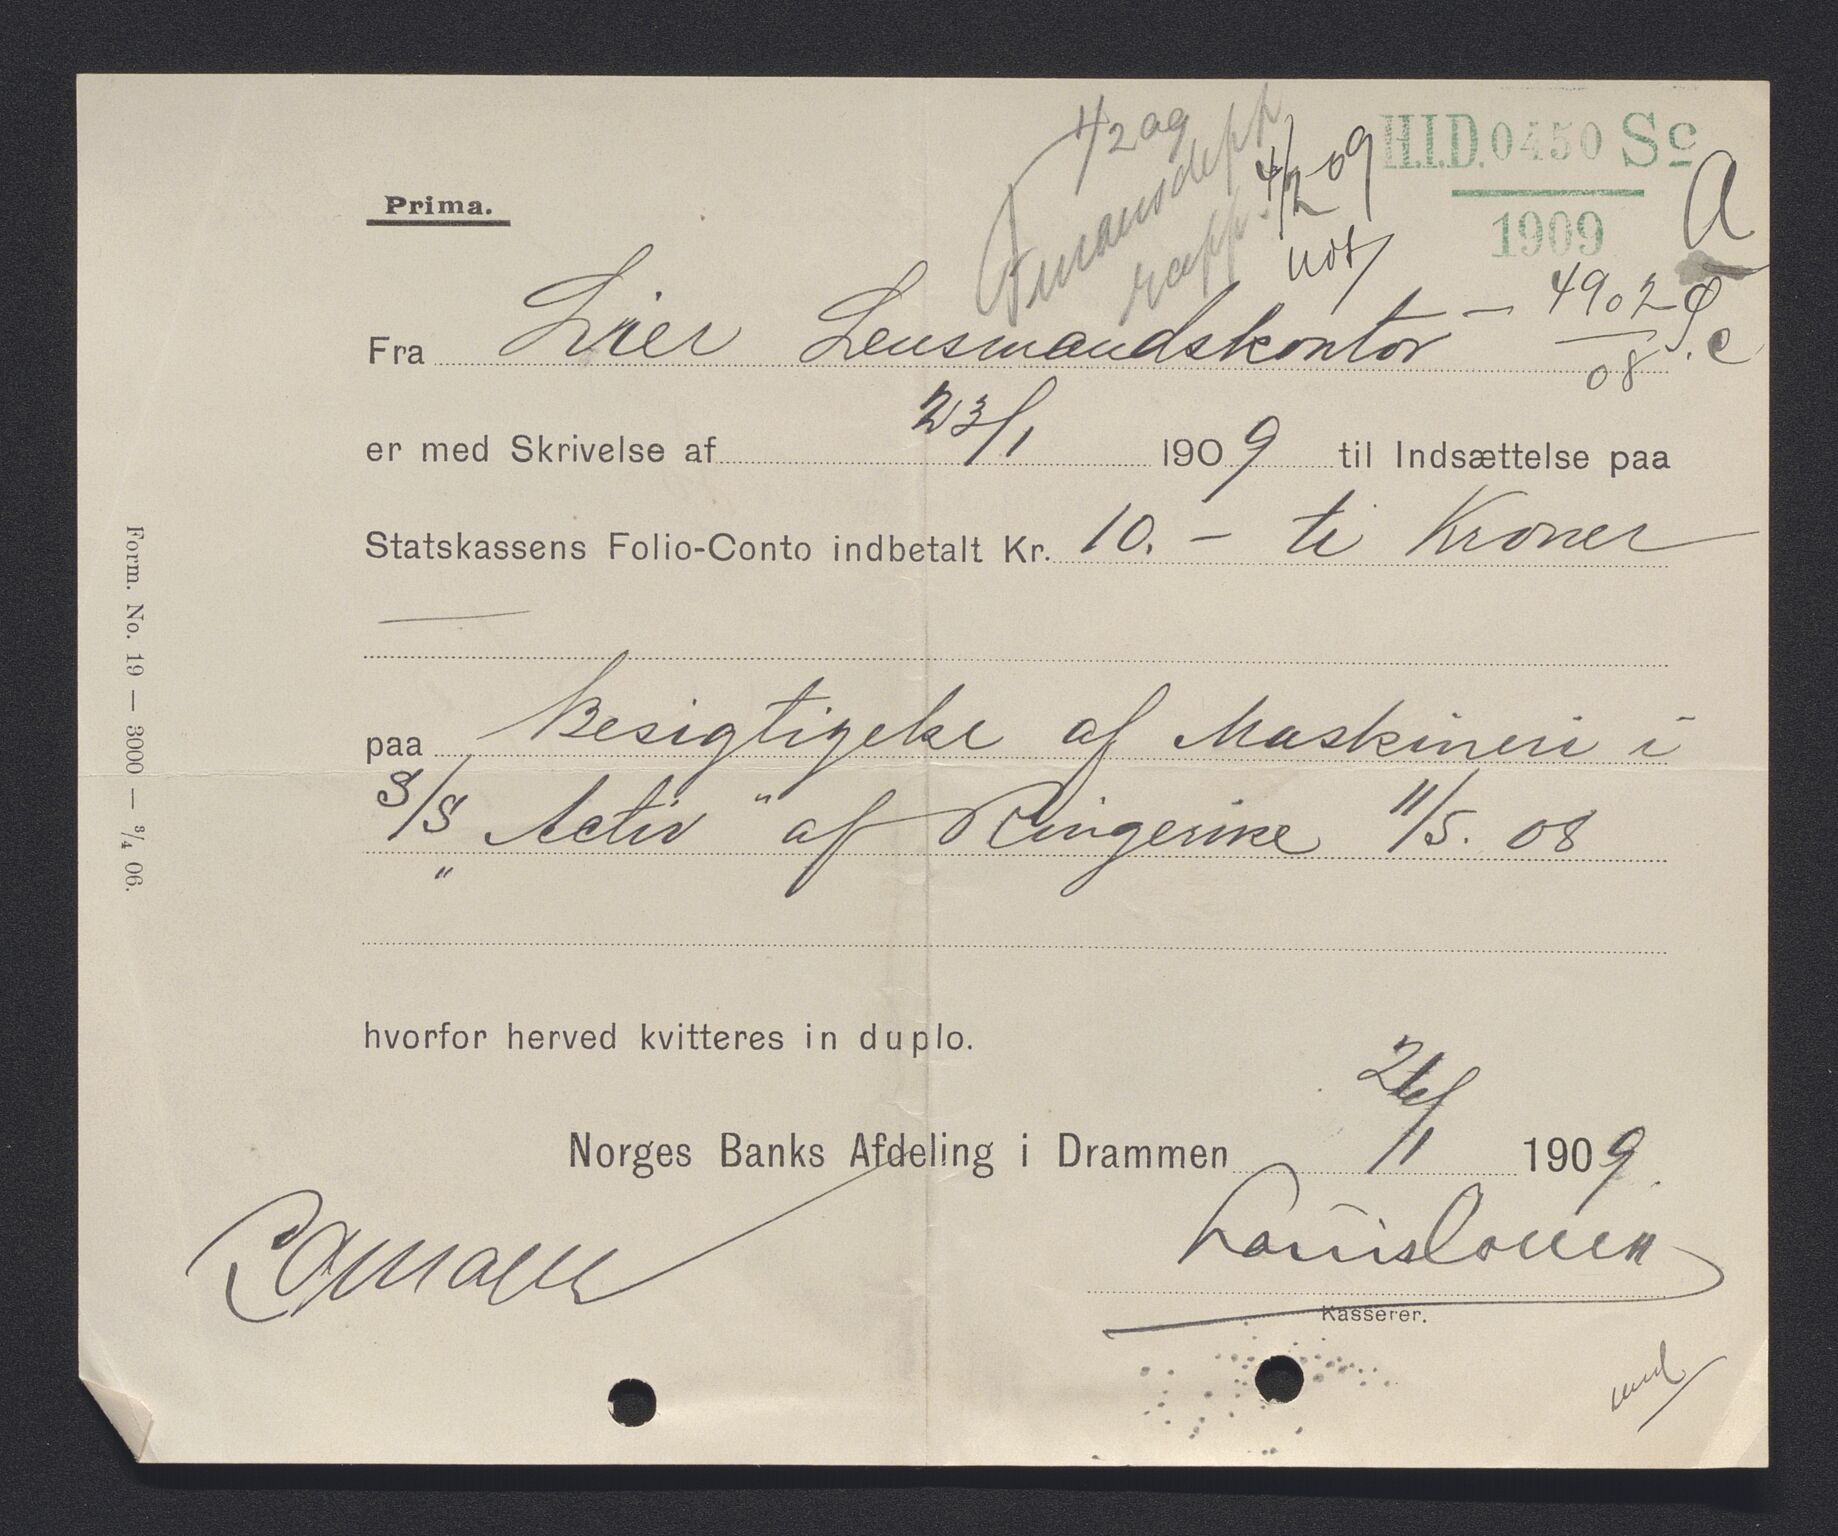 4/2 09
Finansdepp
rapp.
4/2 09
H.I.D. 0450 Sc
1909
A
Prima.
Fra Lier Lensmandskontor — 4902 S.c
08
er med Skrivelse af 23/1 1909 til Indsættelse paa
Statskassens Folio-Conto indbetalt Kr. 10. – ti Kroner
paa Besigtigelse af Maskineri i
S/S „Activ" af Ringerike 11/5. 08
hvorfor herved kvitteres in duplo.
Norges Banks Afdeling i Drammen 26/1 1909.
Kasserer.
Form. No. 19 — 3000 — 3/4 06.